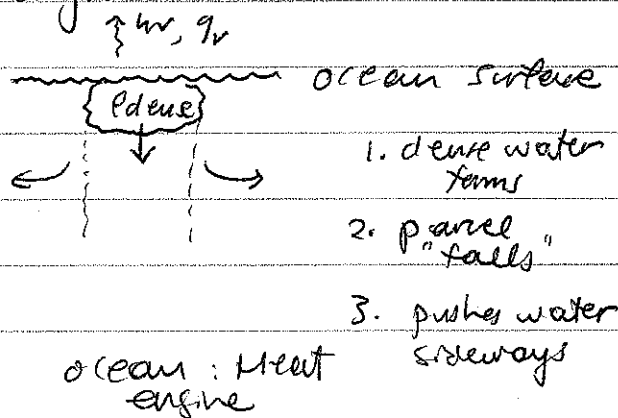 hν, qν
ocean surface
ρdense
1. dense water
forms
2. parcel
"falls"
3. pushes water
sideways
ocean : Heat
engine